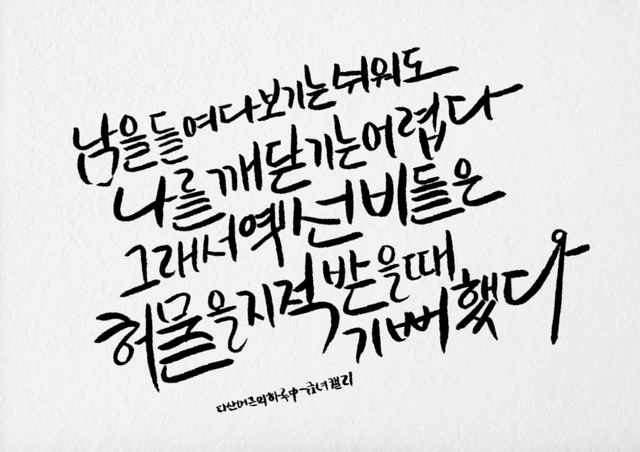 남을 들여다보기는 쉬워도
나를 깨닫기는 어렵다
그래서 옛 선비들은
허물을 지적 받을 때
기뻐했다
다산어른의하루中-금녀캘리